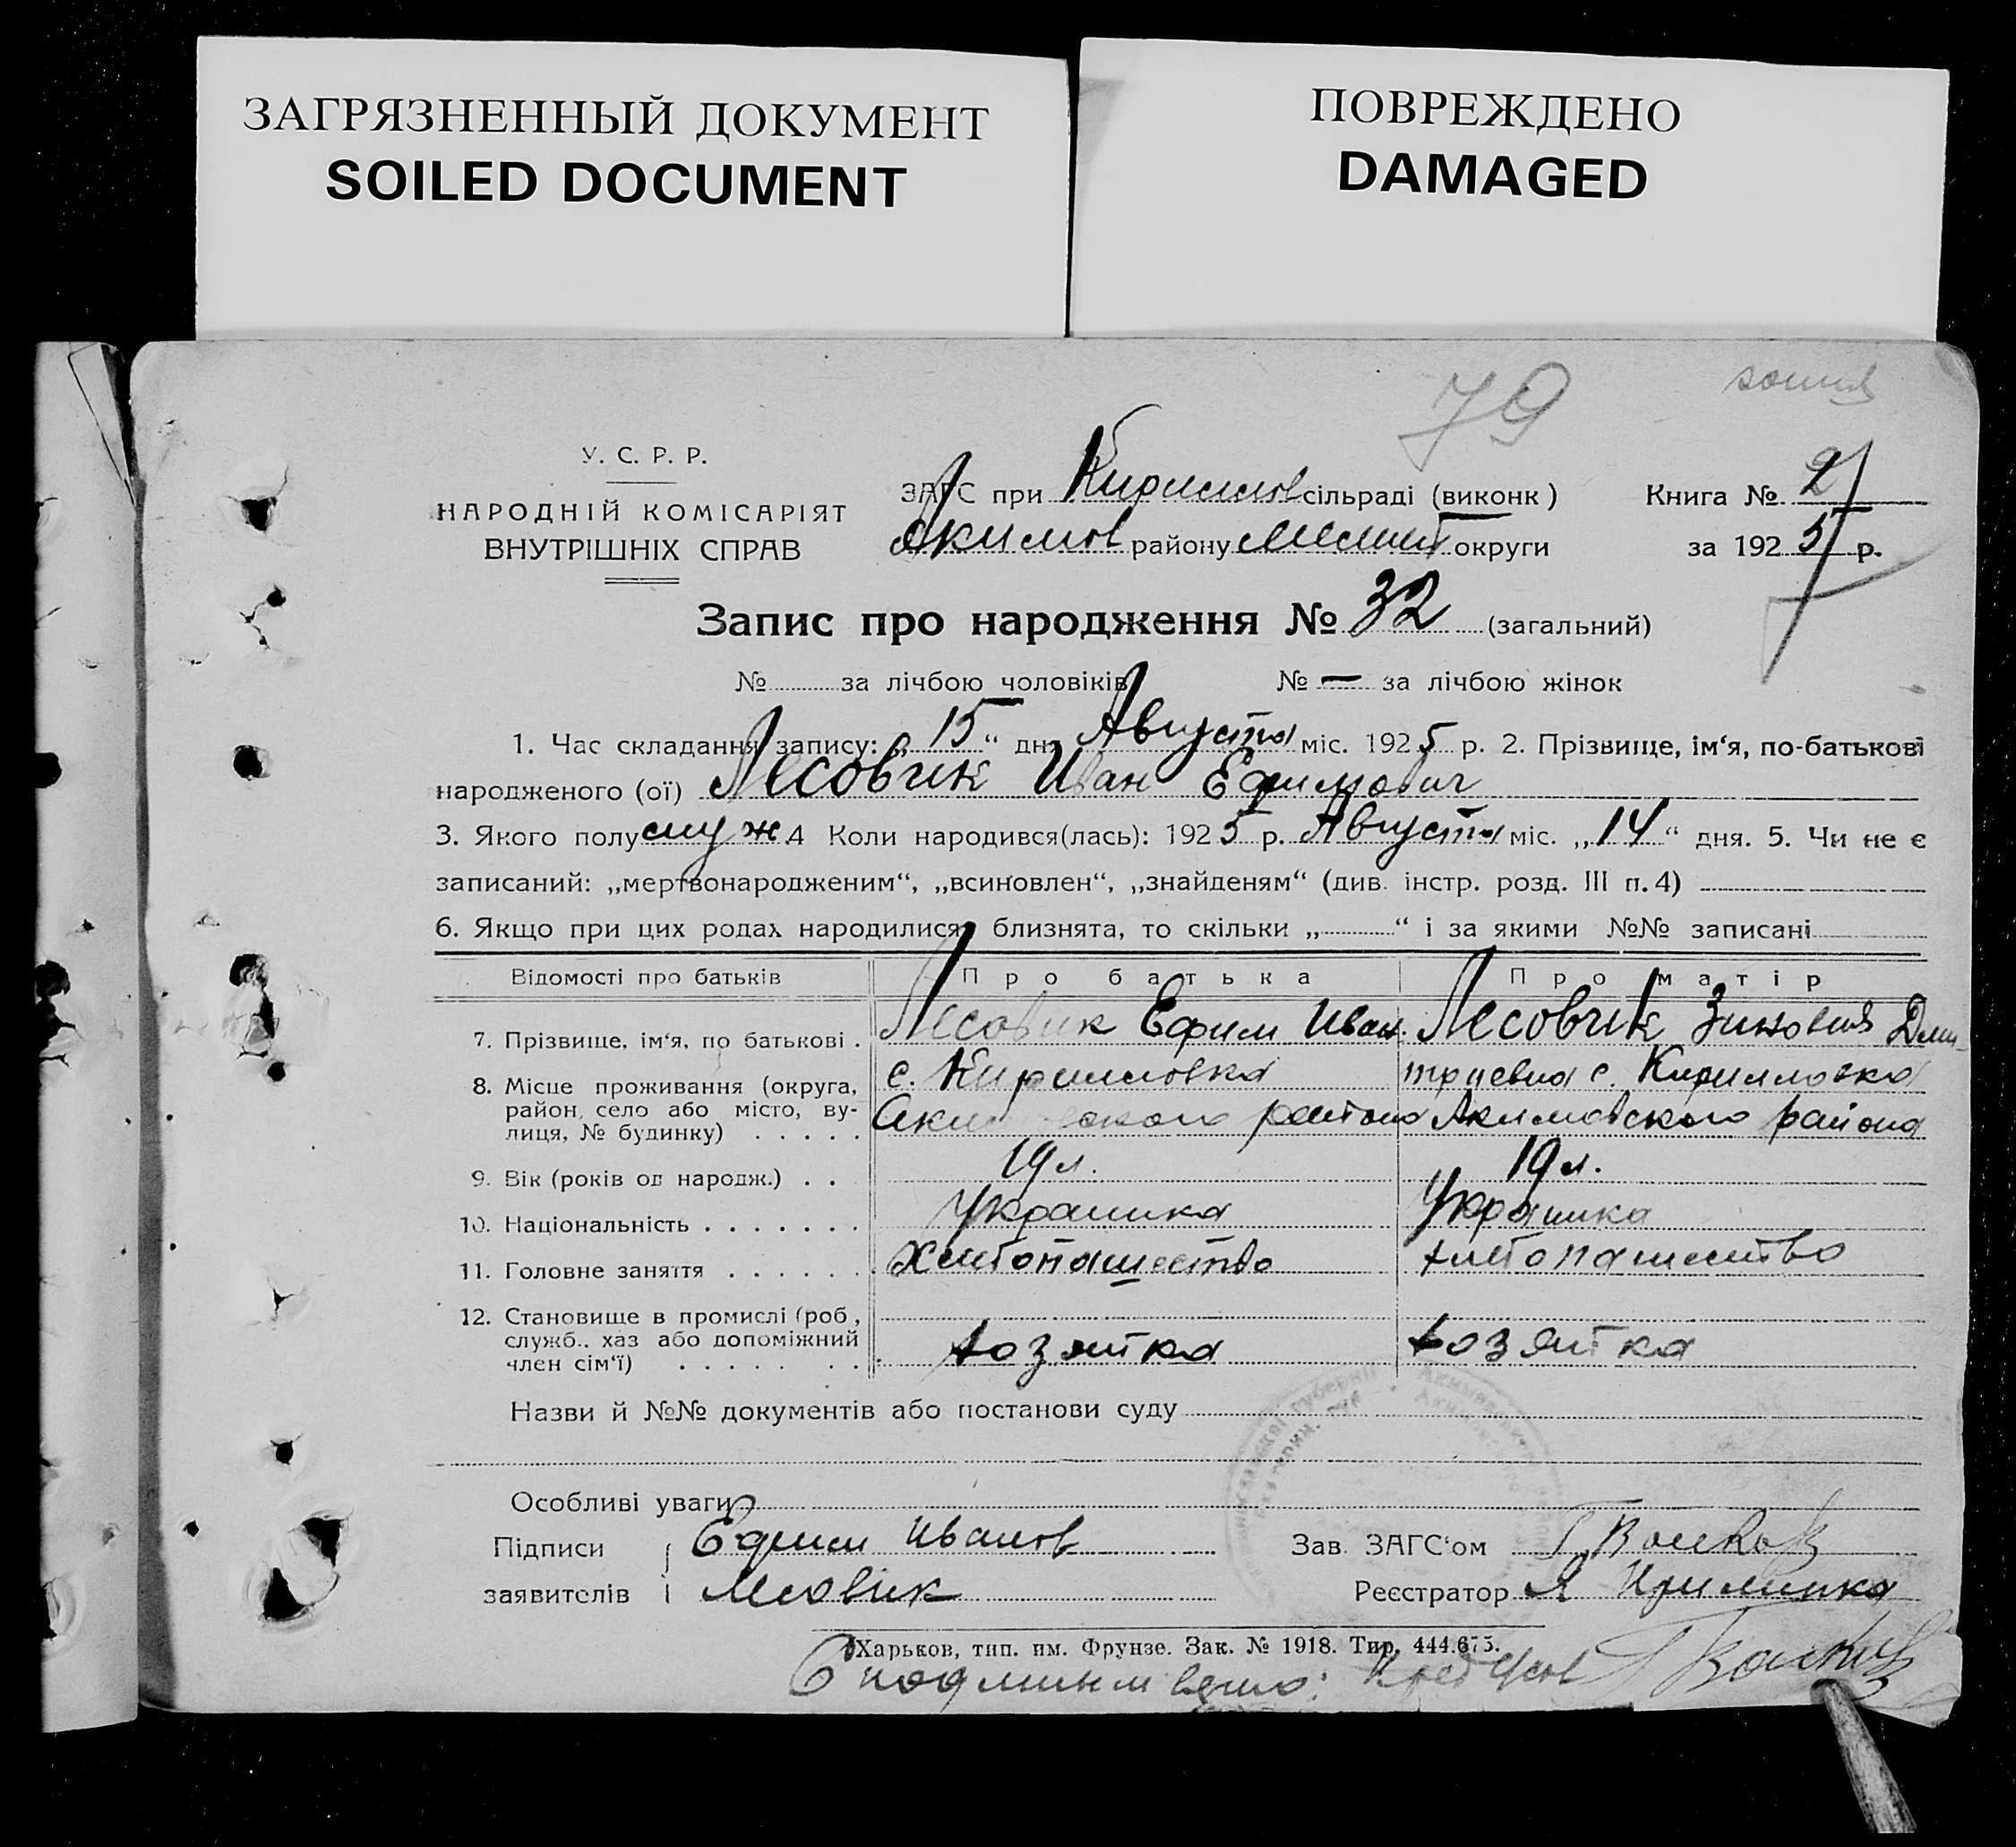 ЗАГРЯЗНЕННЫЙ ДОКУМЕНТ
SOILED DOCUMENT
ПОВРЕЖДЕНО
DAMAGED
79 копия
У. С. Р. Р.
НАРОДНІЙ КОМІСАРІЯТ
ВНУТРІШНІХ СПРАВ
ЗАГС при Кириллов сільраді (виконк)
Акимов району Мелит округи
Книга № 2
за 1925 р.
Запис про народження № 32 (загальний)
№ за лічбою чоловіків № — за лічбою жінок
1. Час складання запису: „15“ дня Августа міс. 1925 р. 2. Прізвище, ім‘я, по-батькові
народженого (ої) Лесовик Иван Ефимович
3. Якого полу муж. 4 Коли народився(лась): 1925 р. Августа міс. „14“ дня. 5. Чи не є
записаний: „мертвонародженим“, „всиновлен“, „знайденям“ (див. інстр. розд. III п. 4)
6. Якщо при цих родах народилися близнята, то скільки „ “ і за якими №№ записані
Відомості про батьків Про батька Про матір
7. Прізвище, ім‘я, по батькові . Лесовик Ефим Иван. Лесовик Зиновия Дми-
8. Місце проживання (округа, с. Кирилловка триевна с. Кирилловка
район, село або місто, ву-
лиця, № будинку) . . . . . района Акимовского района
9. Вік (років од народж.) . . 19 л. 19 л.
10. Національність . . . . . . . Украинка Украинка
11. Головне заняття . . . . . . Хлебопашество хлебопашество
12. Становище в промислі (роб,
служб., хаз або допоміжний
член сім‘ї) . . . . . . . хозяйка хозяйка
Назви й №№ документів або постанови суду
Особливі уваги
Підписи Ефим Иванов
заявителів Лесовик
Зав. ЗАГС‘ом
Реєстратор
Харьков, тип. им. Фрунзе. Зак. № 1918. Тир. 444.675.
С подлинным верно: